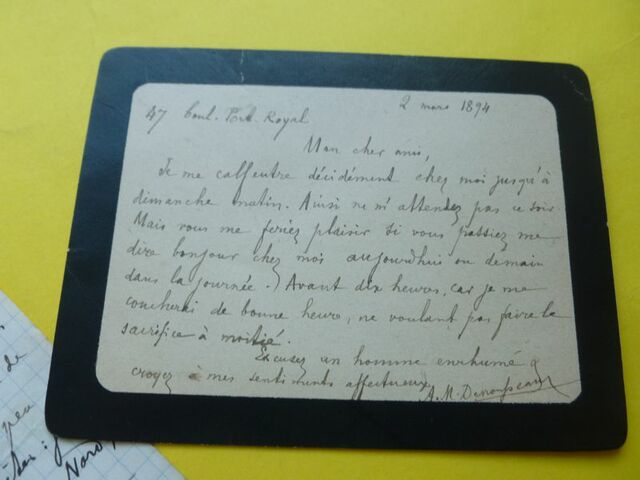 47 boul. Port. Royal
2 mars 1894
Mon cher ami,
Je me calfeutre décidément chez moi jusqu'à
dimanche matin. Ainsi ne m'attendez pas ce soir
Mais vous me feriez plaisir si vous passiez me
dire bonjour chez moi aujourd'hui ou demain
dans la journée. Avant dix heures, car je me
coucherai de bonne heure, ne voulant pas faire le
sacrifice à moitié.
Excusez un homme enrhumé &
croyez à mes sentiments affectueux
A. M.
de
peu
Nord